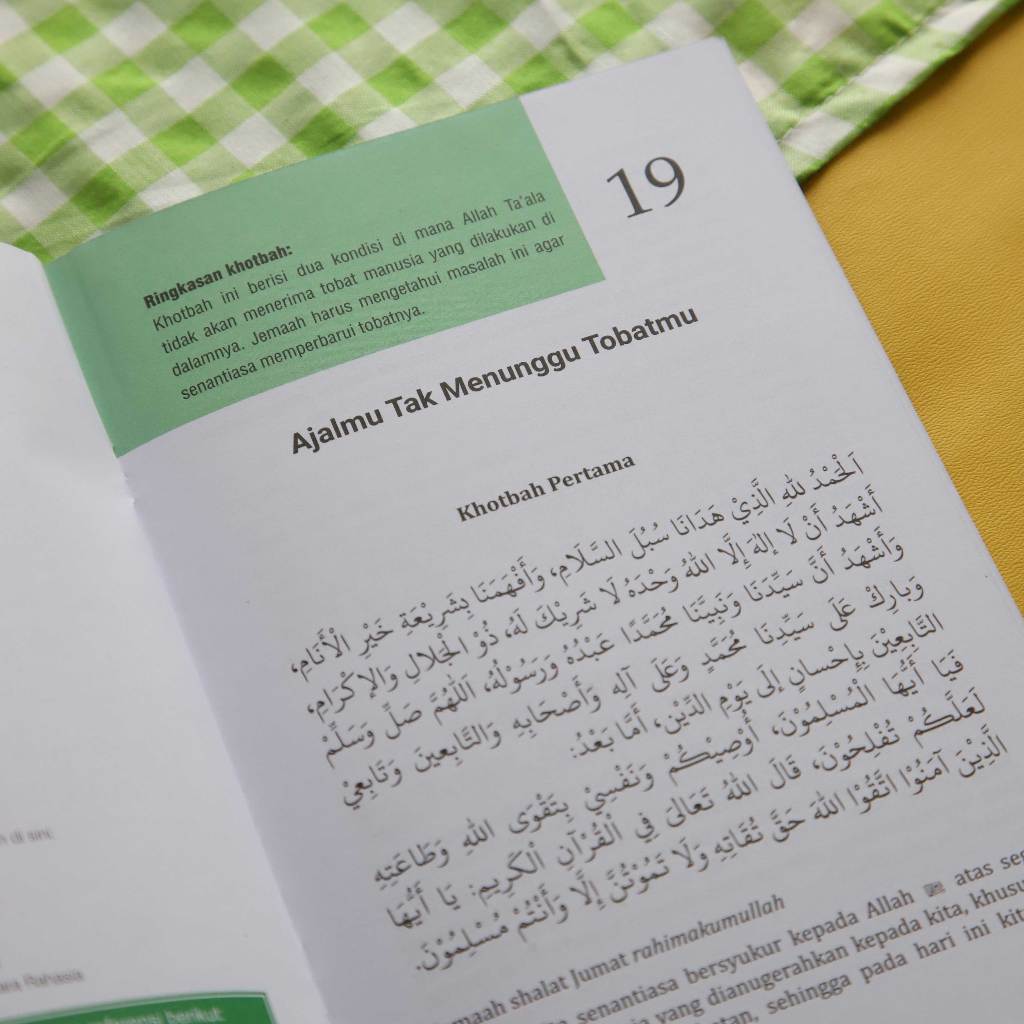 19
Ringkasan khotbah:
Khotbah ini berisi dua kondisi di mana Allah Ta'ala
tidak akan menerima tobat manusia yang dilakukan di
dalamnya. Jemaah harus mengetahui masalah ini agar
senantiasa memperbarui tobatnya.
Ajalmu Tak Menunggu Tobatmu
Khotbah Pertama
اَلْحَمْدُ للهِ الَّذِيْ هَدَانَا سُبُلَ السَّلَامِ، وَأَفْهَمَنَا بِشَرِيْعَةِ خَيْرِ الْأَنَامِ،
أَشْهَدُ أَنْ لَا إِلهَ إِلَّا اللهُ وَحْدَهُ لَا شَرِيْكَ لَهُ، ذُوْ الْجَلالِ وَالإكْرَامِ،
وَأَشْهَدُ أَنَّ سَيِّدَنَا وَنَبِيَّنَا مُحَمَّدًا عَبْدُهُ وَرَسُوْلُهُ، اَللّٰهُمَّ صَلِّ وَسَلِّمْ
وَبارِكْ عَلَى سَيِّدِنَا مُحَمَّدٍ وَعَلَى آلِهِ وَأَصْحَابِهِ وَالتَّابِعِينَ وَتَابِعِيْ
التَّابِعِيْنَ بِإِحْسانٍ إِلَى يَوْمِ الدِّيْنِ، أَمَّا بَعْدُ:
فَيَا أَيُّهَا الْمُسْلِمُوْنَ، أُوْصِيْكُمْ وَنَفْسِيْ بِتَقْوَى اللهِ وَطَاعَتِهِ
لَعَلَّكُمْ تُفْلِحُوْنَ، قَالَ اللهُ تَعَالىَ فِي الْقُرْآنِ الْكَرِيمِ: يَا أَيُّهَا
الَّذِيْنَ آمَنُوْا اتَّقُوْا اللهَ حَقَّ تُقَاتِهِ وَلَا تَمُوْتُنَّ إِلَّا وَأَنْتُمْ مُسْلِمُوْنَ.
maah shalat Jumat rahimakumullah
senantiasa bersyukur kepada Allah atas
yang dianugerahkan kepada kita,
sehingga pada hari ini
di sini:
Rahasia
berikut